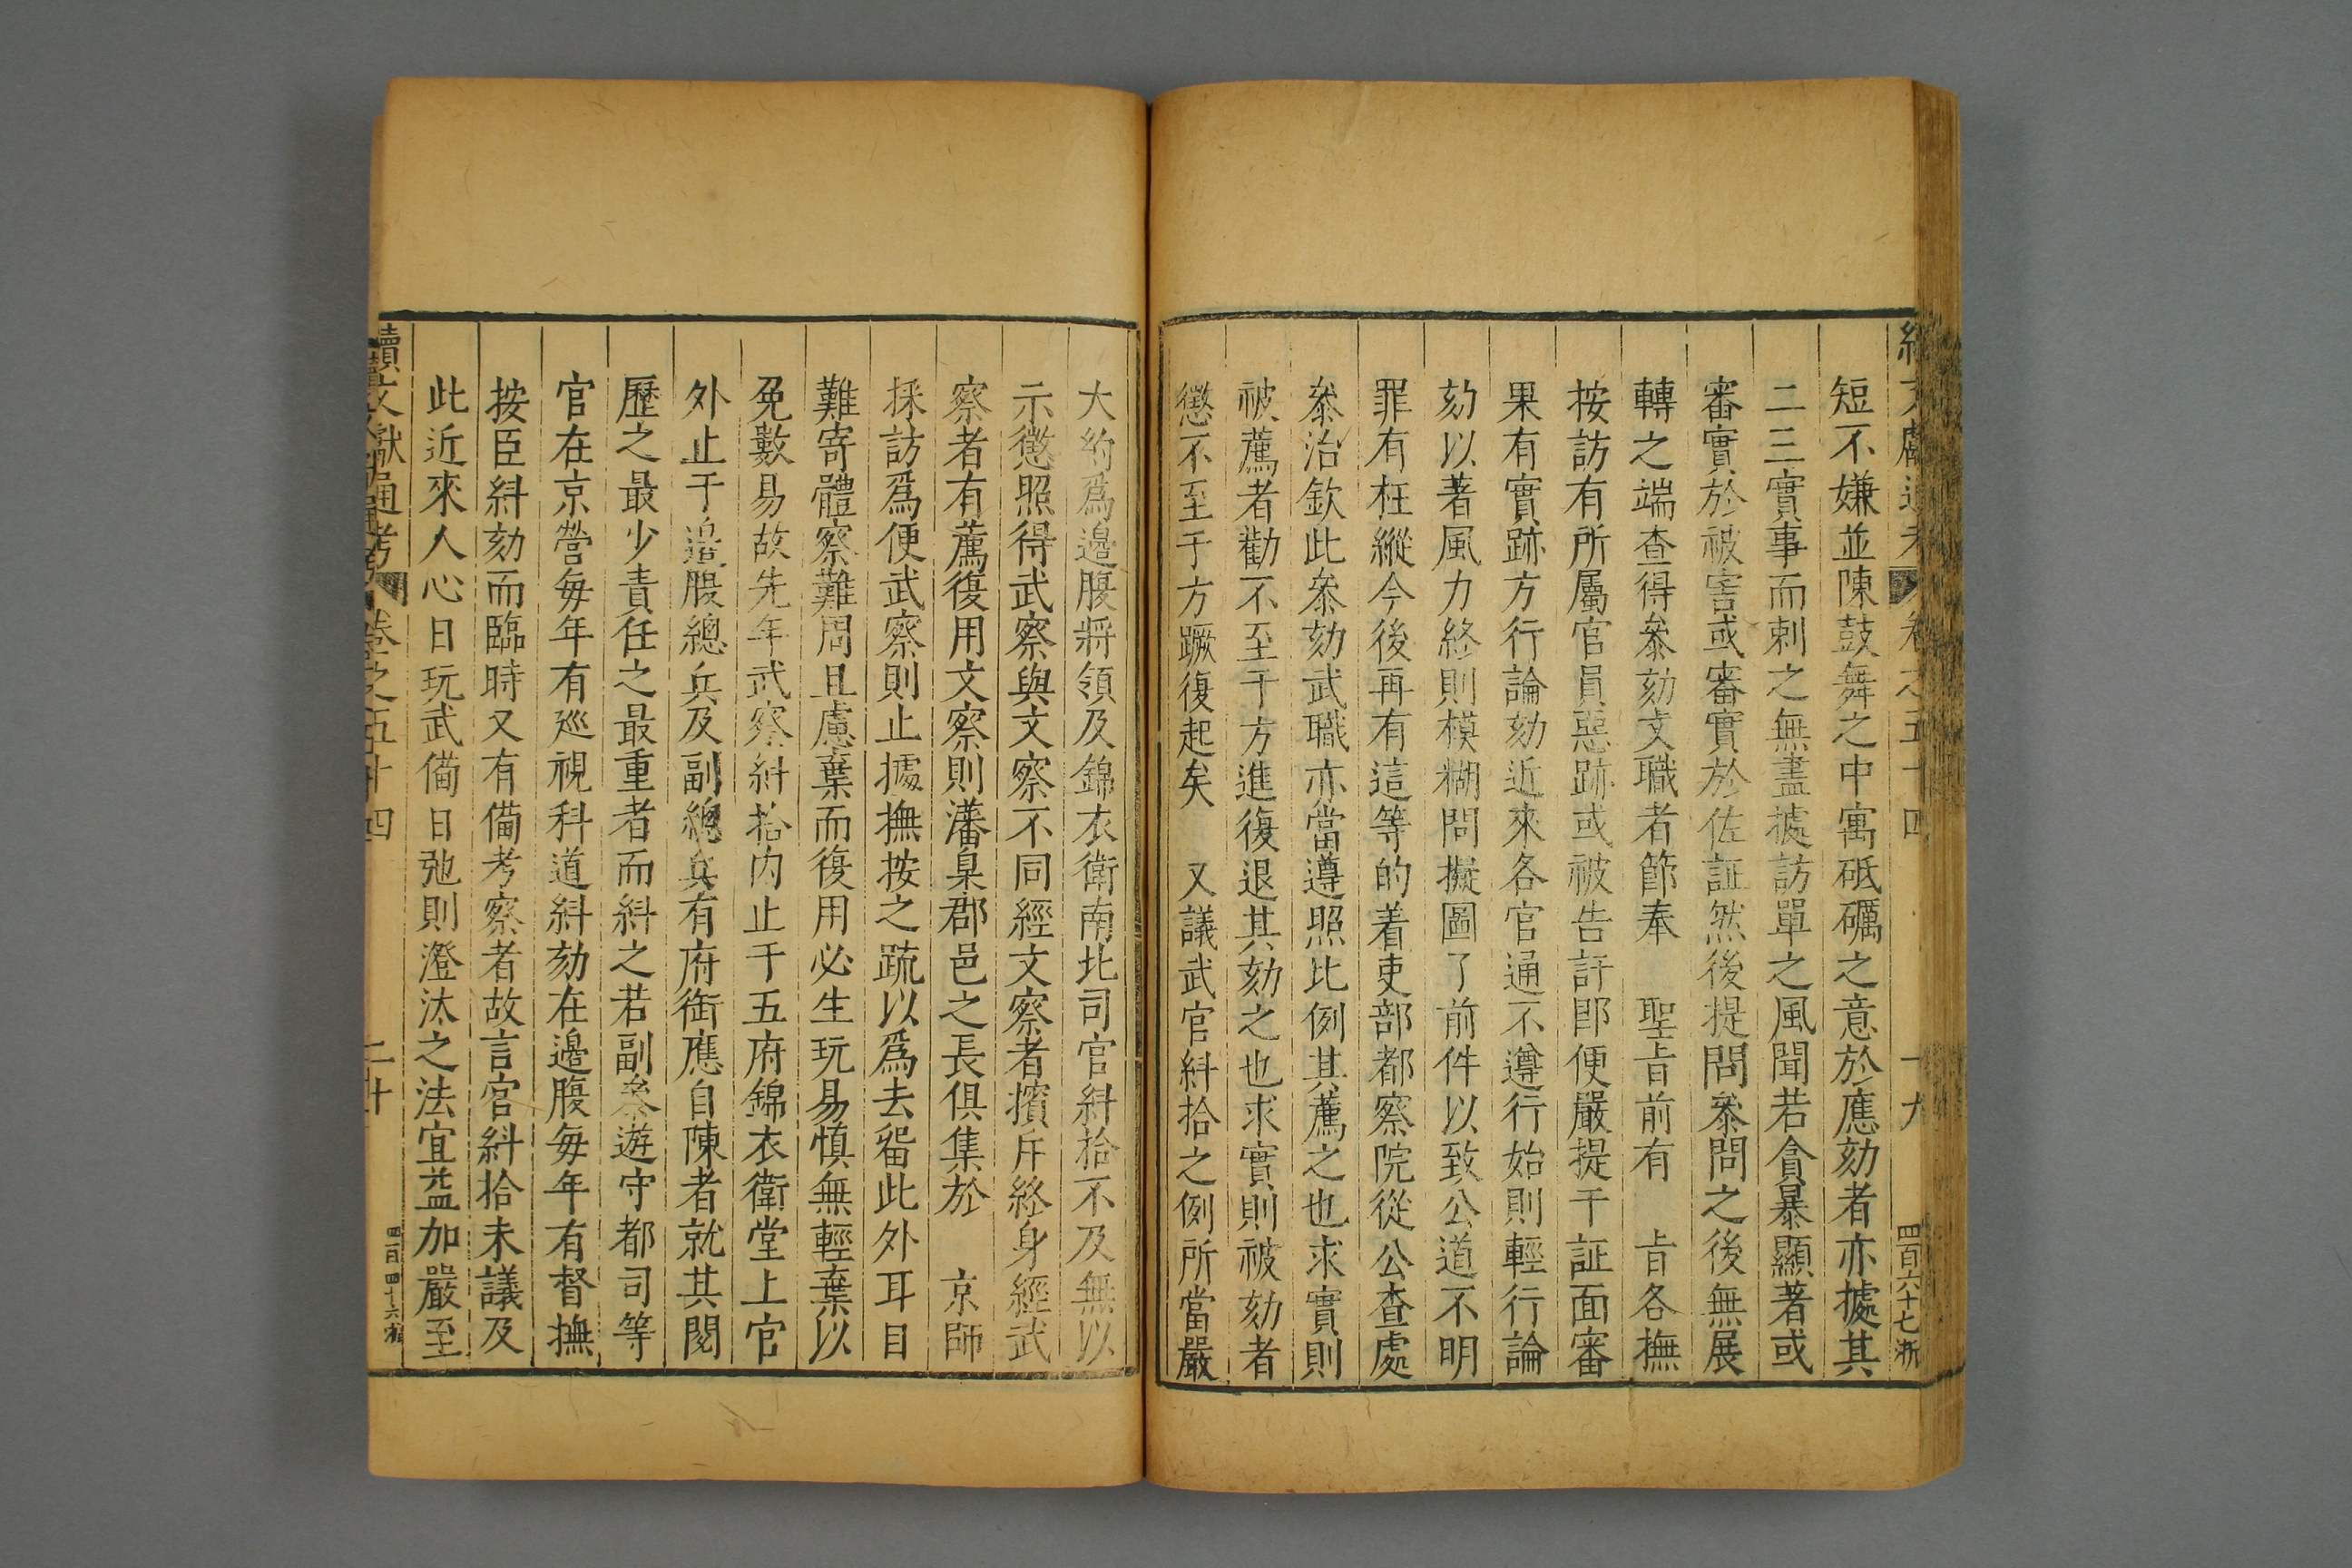 短不嫌並陳鼓舞之中寓砥礪之意於應劾者亦據其
二三實事而刺之無盡據訪單之風聞若貪暴顯著或
審實於被害或審實於佐証然後提問叅問之後無展
轉之端查得叅劾文職者節奉 聖旨前有 旨各撫
按訪有所屬官員惡跡或被告訐即便嚴提干証面審
果有實跡方行論劾近來各官通不遵行始則輕行論
劾以著風力終則模糊問擬圖了前件以致公道不明
罪有枉縱今後再有這等的着吏部都察院從公查處
叅治欽此叅劾武職亦當遵照比例其薦之也求實則
被薦者勸不至于方進復退其劾之也求實則被劾者
懲不至于方蹶復起矣 又議武官糾拾之例所當嚴
四百六十七浙
大約爲邊腹將領及錦衣衛南北司官糾拾不及無以
示懲照得武察與文察不同經文察者擯斥終身經武
察者有薦復用文察則藩臬郡邑之長俱集於 京師
採訪爲便武察則止據撫按之疏以爲去畱此外耳目
難寄體察難周且慮棄而復用必生玩易慎無輕棄以
免數易故先年武察糾拾內止于五府錦衣衛堂上官
外止于邊腹總兵及副總兵有府銜應自陳者就其閱
歷之最少責任之最重者而糾之若副叅遊守都司等
官在京營每年有廵視科道糾劾在邊腹每年有督撫
按臣糾劾而臨時又有備考察者故言官糾拾未議及
此近來人心日玩武備日弛則澄汰之法宜益加嚴至
續文獻通考 卷之五十四 二十